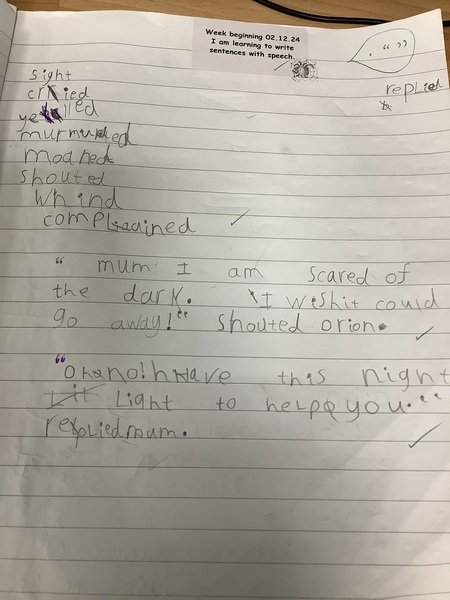 Week beginning 02.12.24
I am learning to write
sentences with speech.
. “ ”
replied
sight
cried
yelled
murmured
moaned
shouted
Whind
complained
“ mum I am scared of
the dark. I wish it could
go away!“ shouted orion.
“oh no! Have this night
light to help you.“
replied mum.